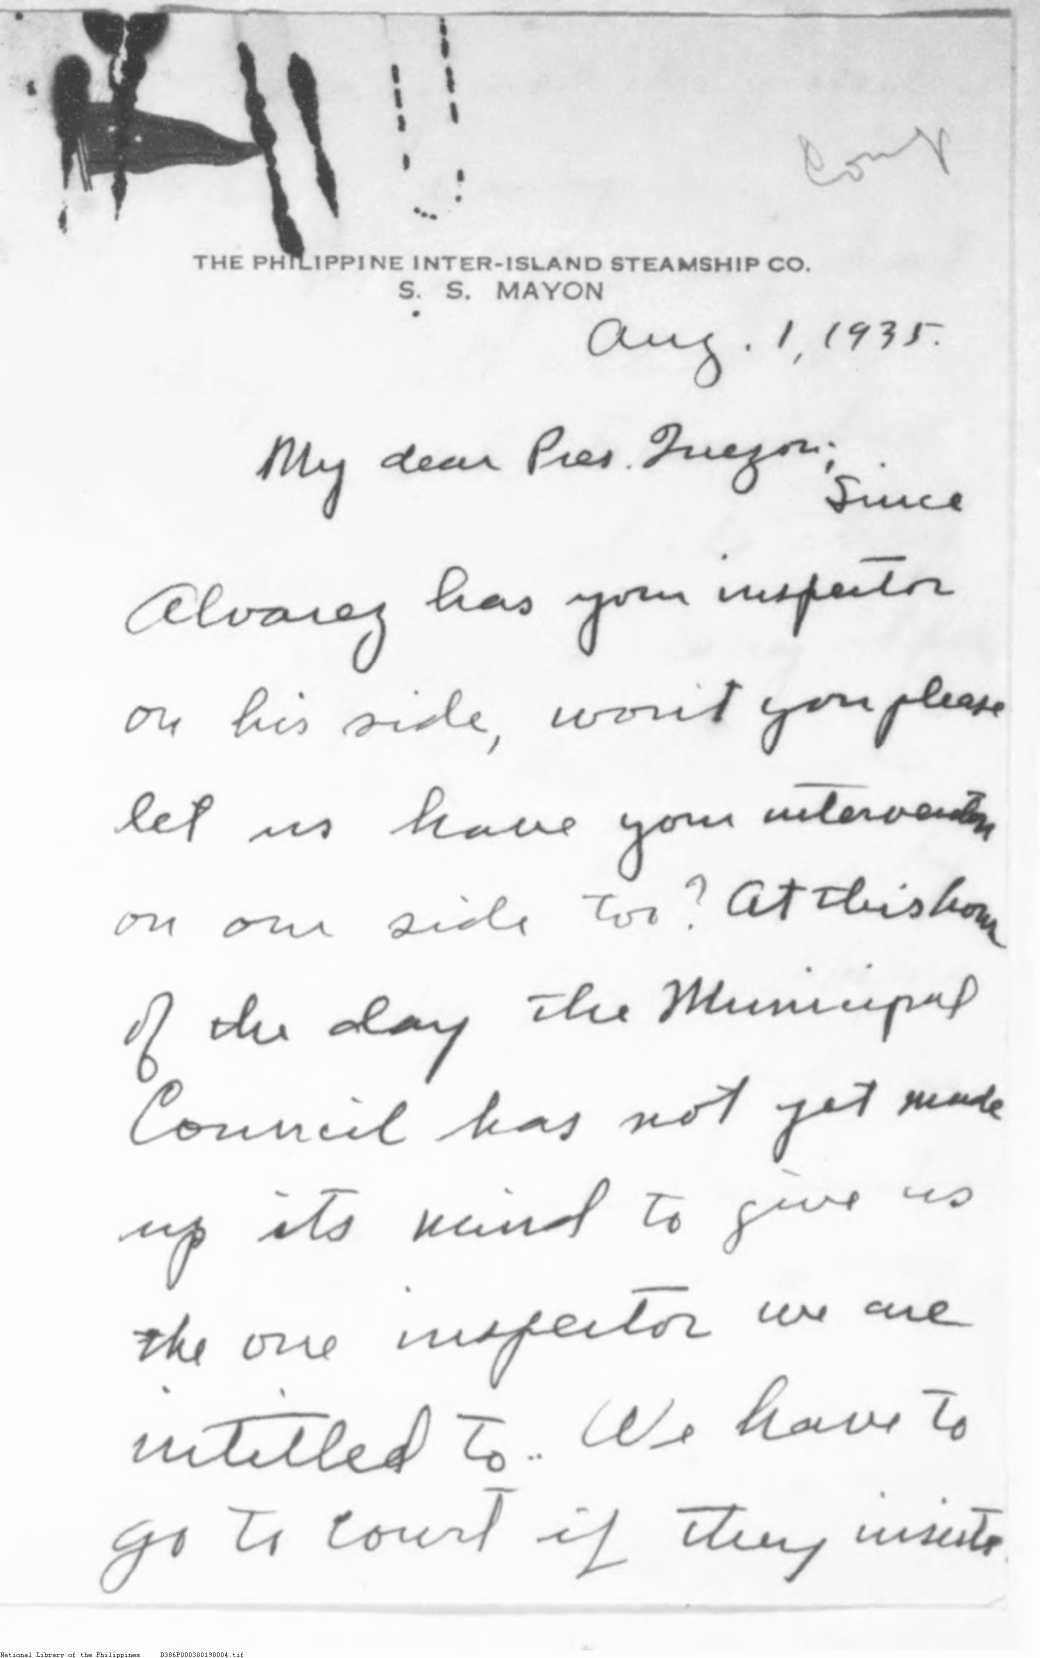 Conf
THE PHILIPPINE INTER-ISLAND STEAMSHIP CO.
S. S. MAYON
Aug. 1, 1935.
My dear Pres. Quezon;
Since
Alvarez has your inspector
on his side, won't you please
let us have your intervention
on our side too? At this hour
of the day the Municipal
Council has not yet made
up its mind to give us
the one inspector we are
intitled to.. We have to
go to court if they insists.
National Library of the Philippines D386P000380198004.tif